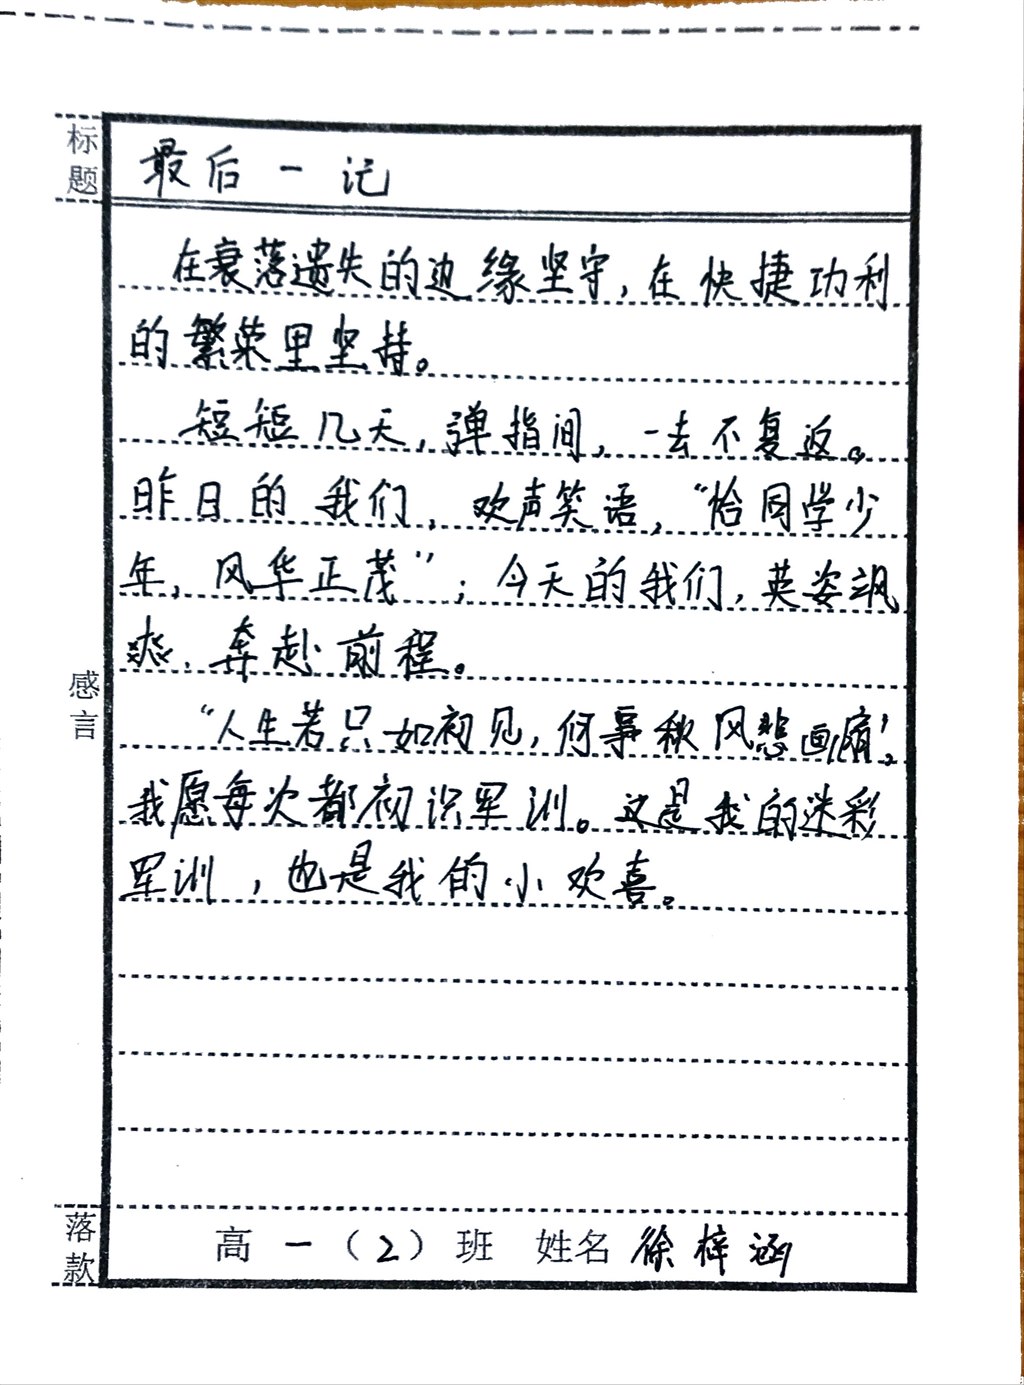 标题
最后一记
在衰落遗失的边缘坚守,在快捷功利
的繁荣里坚持。
短短几天,弹指间,一去不复返。
昨日的我们,欢声笑语,“恰同学少
年,风华正茂”;今天的我们,英姿飒
爽,奔赴前程。
“人生若只如初见,何事秋风悲画扇”,
我愿每次都初识军训。这是我的迷彩
军训,也是我的小欢喜。
感言
落款
高一(2)班 姓名 徐梓涵